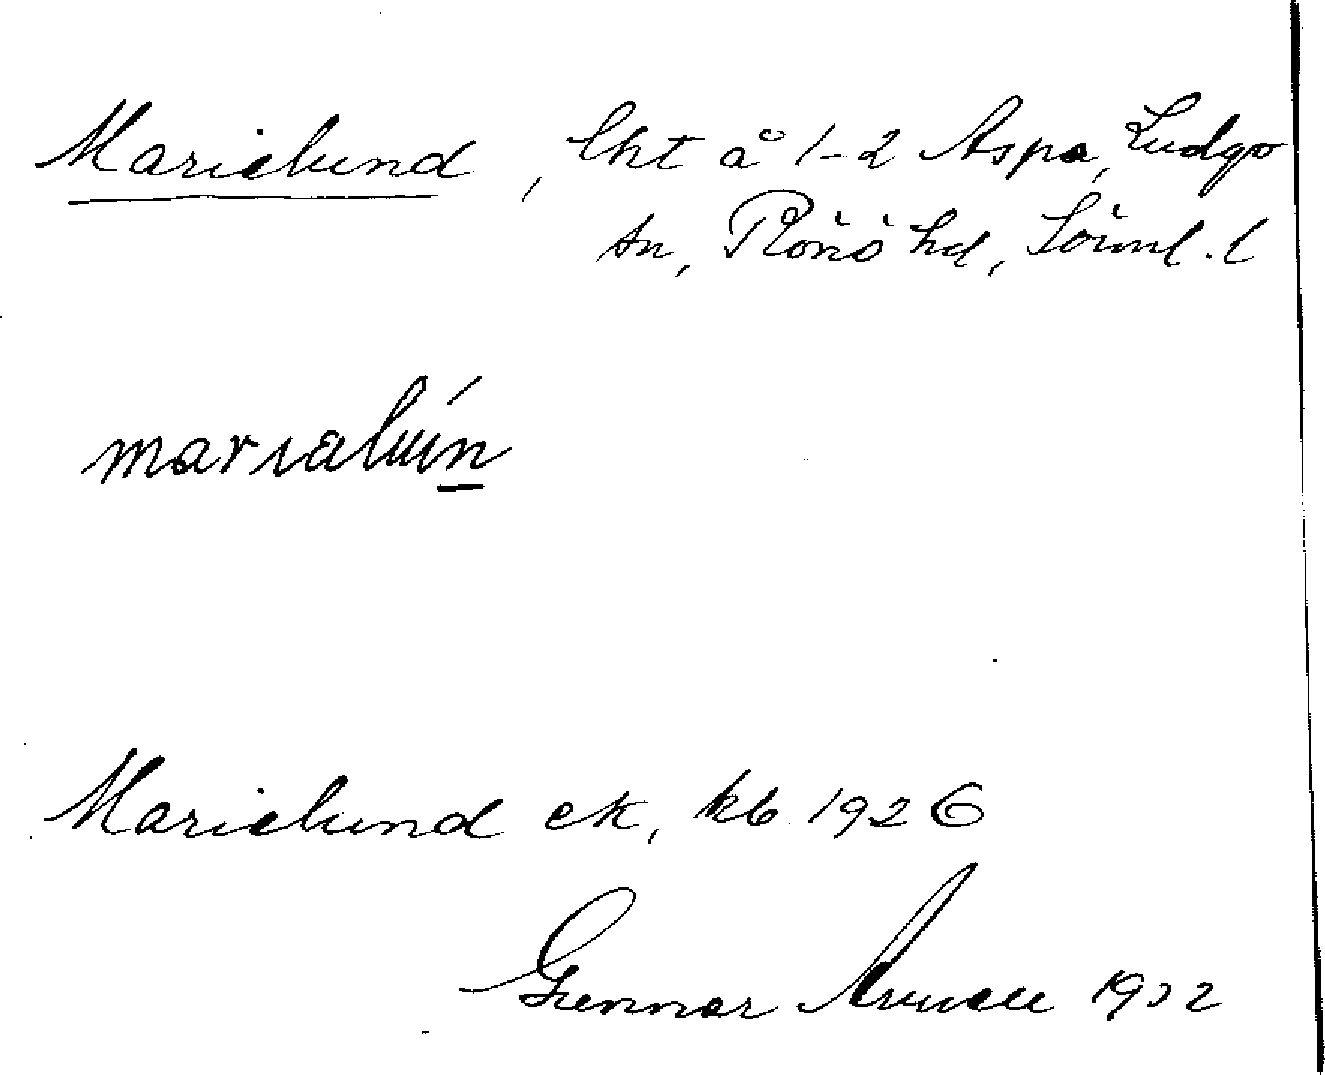 Marielund, lht å 1-2 Aspa, Ludgo
sn, Rönö hd, Sörml. l
marialún
Marielund ek, kb 1926
Gunnar